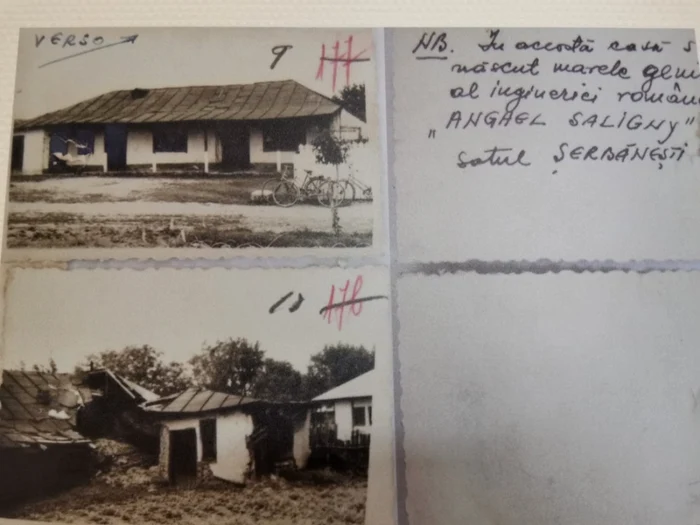 VERSO
9 177
NB. În această casă s
născut marele geni
al ingineriei român
"ANGHEL SALIGNY"
satul ȘERBĂNEȘTI
10 178